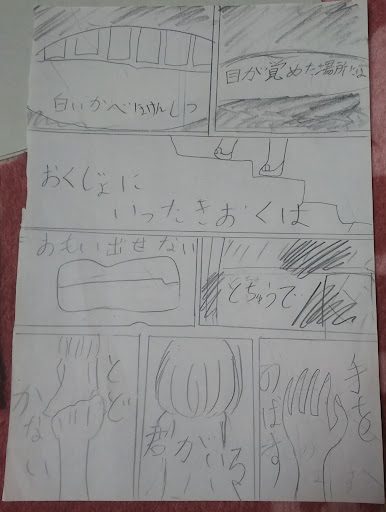 目が覚めた場所は
白いかべほけんしつ
おくじょに
いったきおくは
とちゅうで
おもい出せない
手を
のばす
君がいる
とど
かない